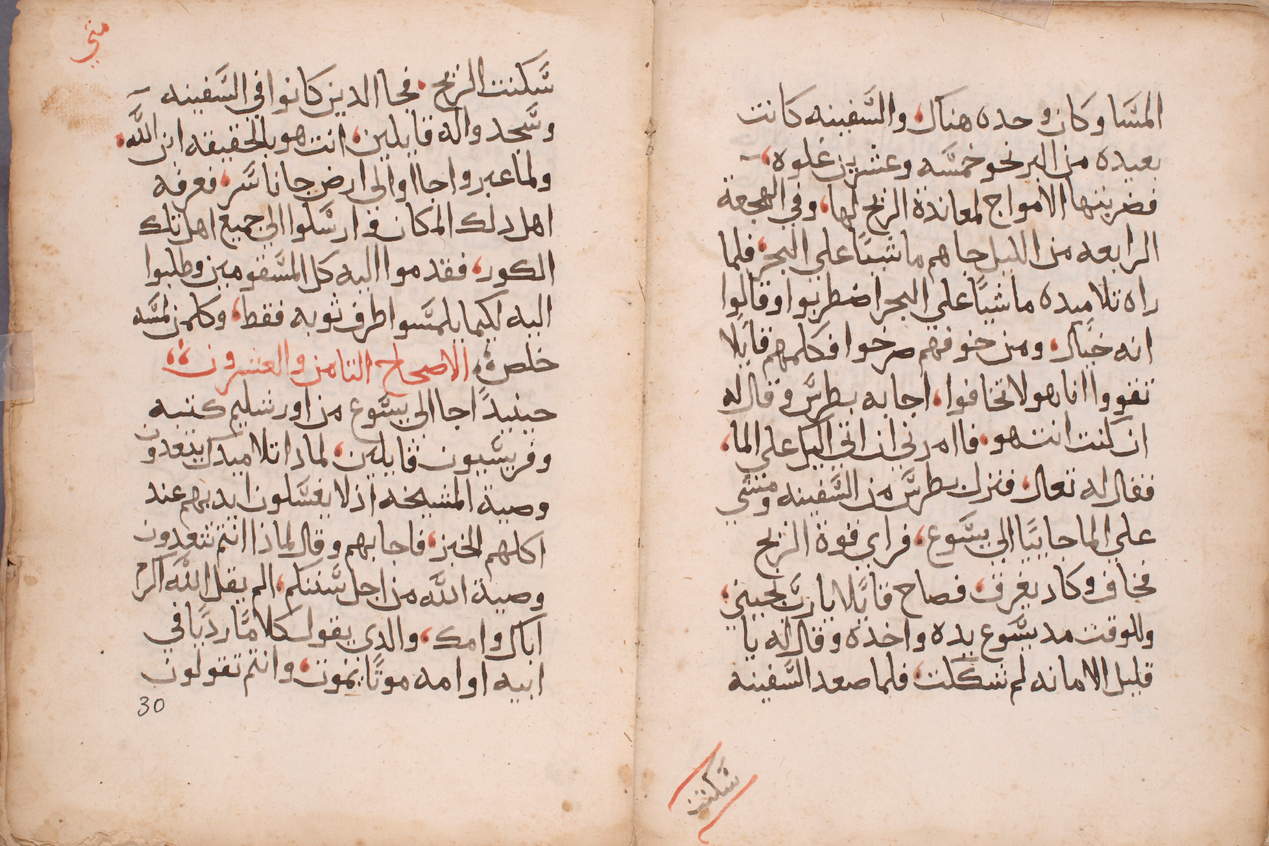 المسا وكان وحده هناك، والسفينه كانت
بعيده من البر نحو خمسه وعشرين غلوه،
فضربتها الامواج لمعاندة الريح لها، وفي الهجعة
الرابعه من الليل جاهم ماشيًا علي البحر، فلما
راه تلاميده ماشيًا علي البحر اضطربوا وقالوا
انه خيال، ومن خوفهم صرخوا فكلمهم قايلا
تقووا انا هو لا تخافوا، اجابه بطرس وقال له
ان كنت انت هو، فاامرني ان اتي اليك علي الما،
فقال له تعال، فنزل بطرس من السفينه ومشي
علي الما جاييًا الي يسوع، فراي قوة الريح
فخاف وكاد يغرق، فصاح قايلا يارب نجيني،
وللوقت مد يسوع يده واخده وقال له يا
قليل الامانه لم تشككت، فلما صعد السفينه
سكنت
متي
سكنت الريح، فجا الدين كانوا في السفينه
وسجدوا له قايلين، انت هو بالحقيقه ابن الله،
ولما عبروا جاا والي ارض جاناسر، فعرفه
اهل دلك المكان وارسلوا الي جميع اهل تلك
الكور، فقدموا اليه كل المسقومين وطلبوا
اليه لكيما يلمسوا طرف ثوبه فقط، وكلمن لمسه
خلص، الاصحاح التامن والعشرون
حينيدًا جا الي يسوع من اورشليم كتبه
وفريسيون قايلين، لمادا تلاميدك يتعدون
وصية المشيخه اذ لا يغسلون ايديهم عند
اكلهم الخبز، فاجابهم وقال لماذا انتم تتعدون
وصية الله من اجل سنتكم، الم يقل الله اكرم
اباك وامك، والدي يقول كلامًا رديًا في
ابيه او امه موتًا يموت، وانتم تقولون
30